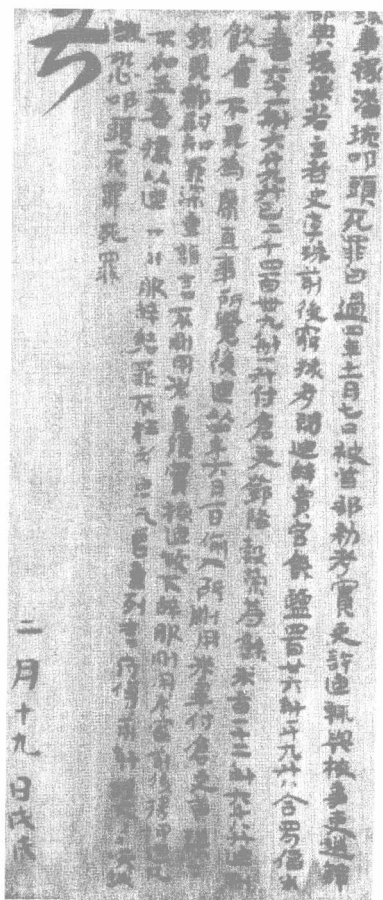 録事掾潘琬叩頭死罪白過四年十一月七日被督郵勅考實吏許迪輒與核事吏趙譚
部典掾烝若主者史李珠前後窮核考問迪辭賣官餘鹽四百廿六斛一斗九升八合四勺偪米
二千五百六十一斛六斗九升已二千四百卌九斛一升付倉吏鄧隆穀榮等餘米一百一十二斛六斗八升迪割用
飲食不見為廉直事所覺後迪以四年六月一日偷入所割用米畢付倉吏黃瑛受
錄見都尉知罪深重詣言不割用米重復實核迪故下辭服割用米審前後搒押迪凡百
下不加五毒據以迪服辭結罪不枉考迪乞曹重列言府傅前解謹下啟琬誠
惶誠恐叩頭死罪死罪
若
二月十九日戊戌